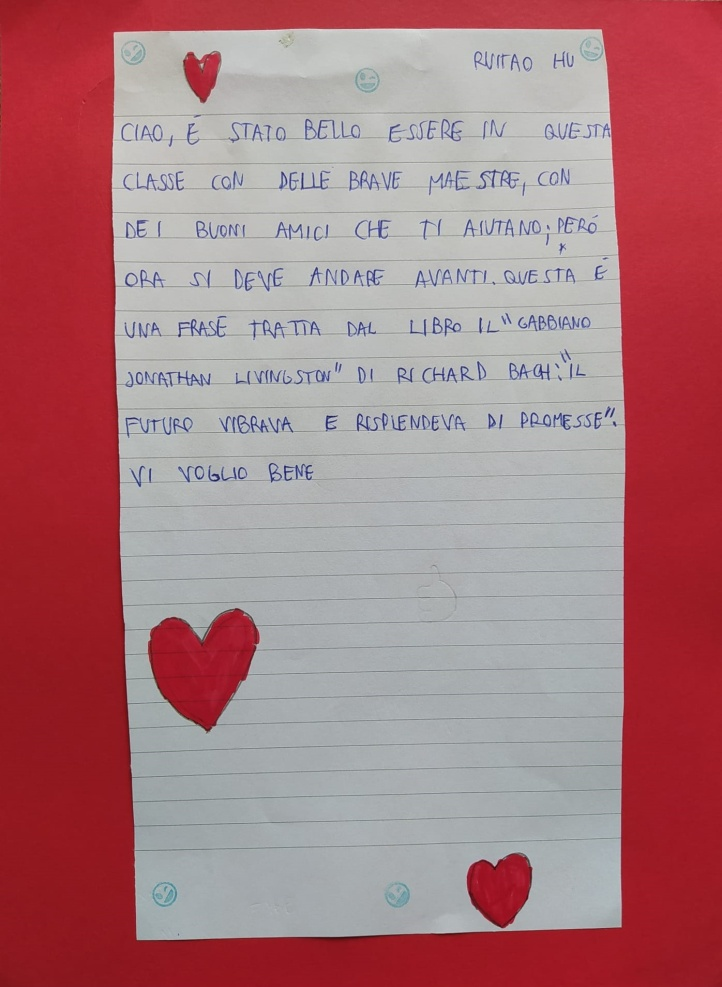 RUITAO HU
CIAO, É STATO BELLO ESSERE IN QUESTA
CLASSE CON DELLE BRAVE MAESTRE, CON
DEI BUONI AMICI CHE TI AIUTANO; PERÓ
ORA SI DEVE ANDARE AVANTI. QUESTA É
UNA FRASE TRATTA DAL LIBRO IL "GABBIANO
JONATHAN LIVINGSTON" DI RICHARD BACH: "IL
FUTURO VIBRAVA E RISPLENDEVA DI PROMESSE".
VI VOGLIO BENE